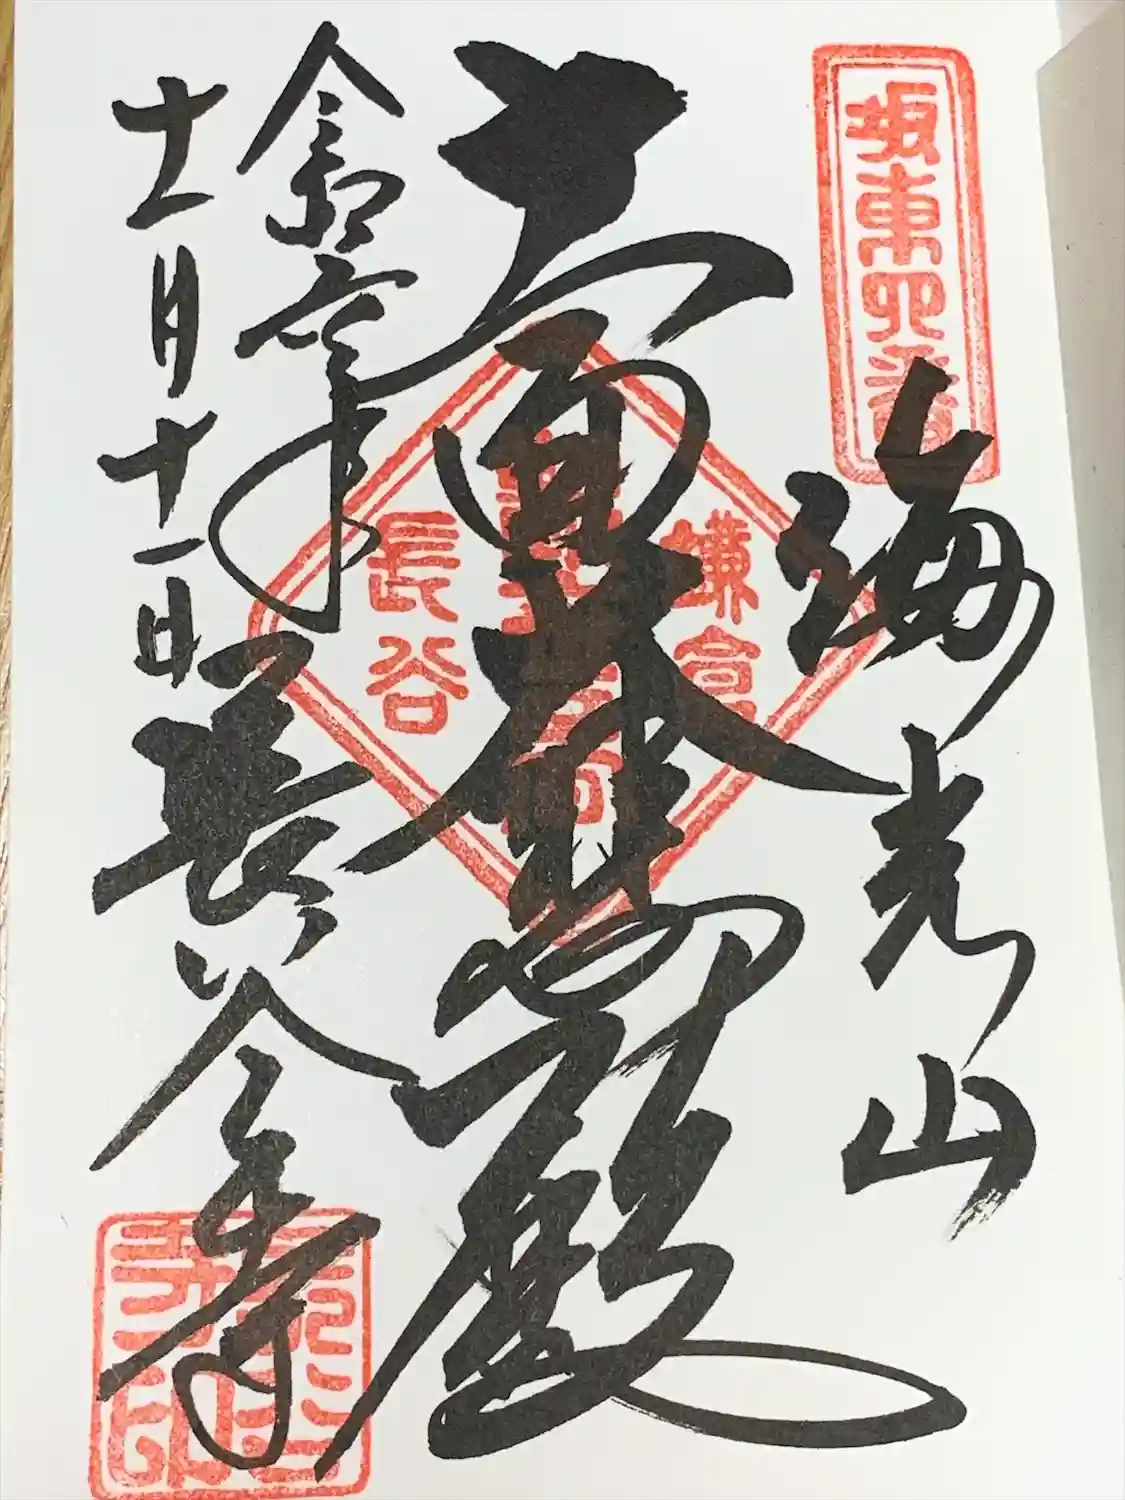 坂東四番
海光山
十一面大悲殿
鎌倉
長谷
令和六年
十一月十一日
長谷寺